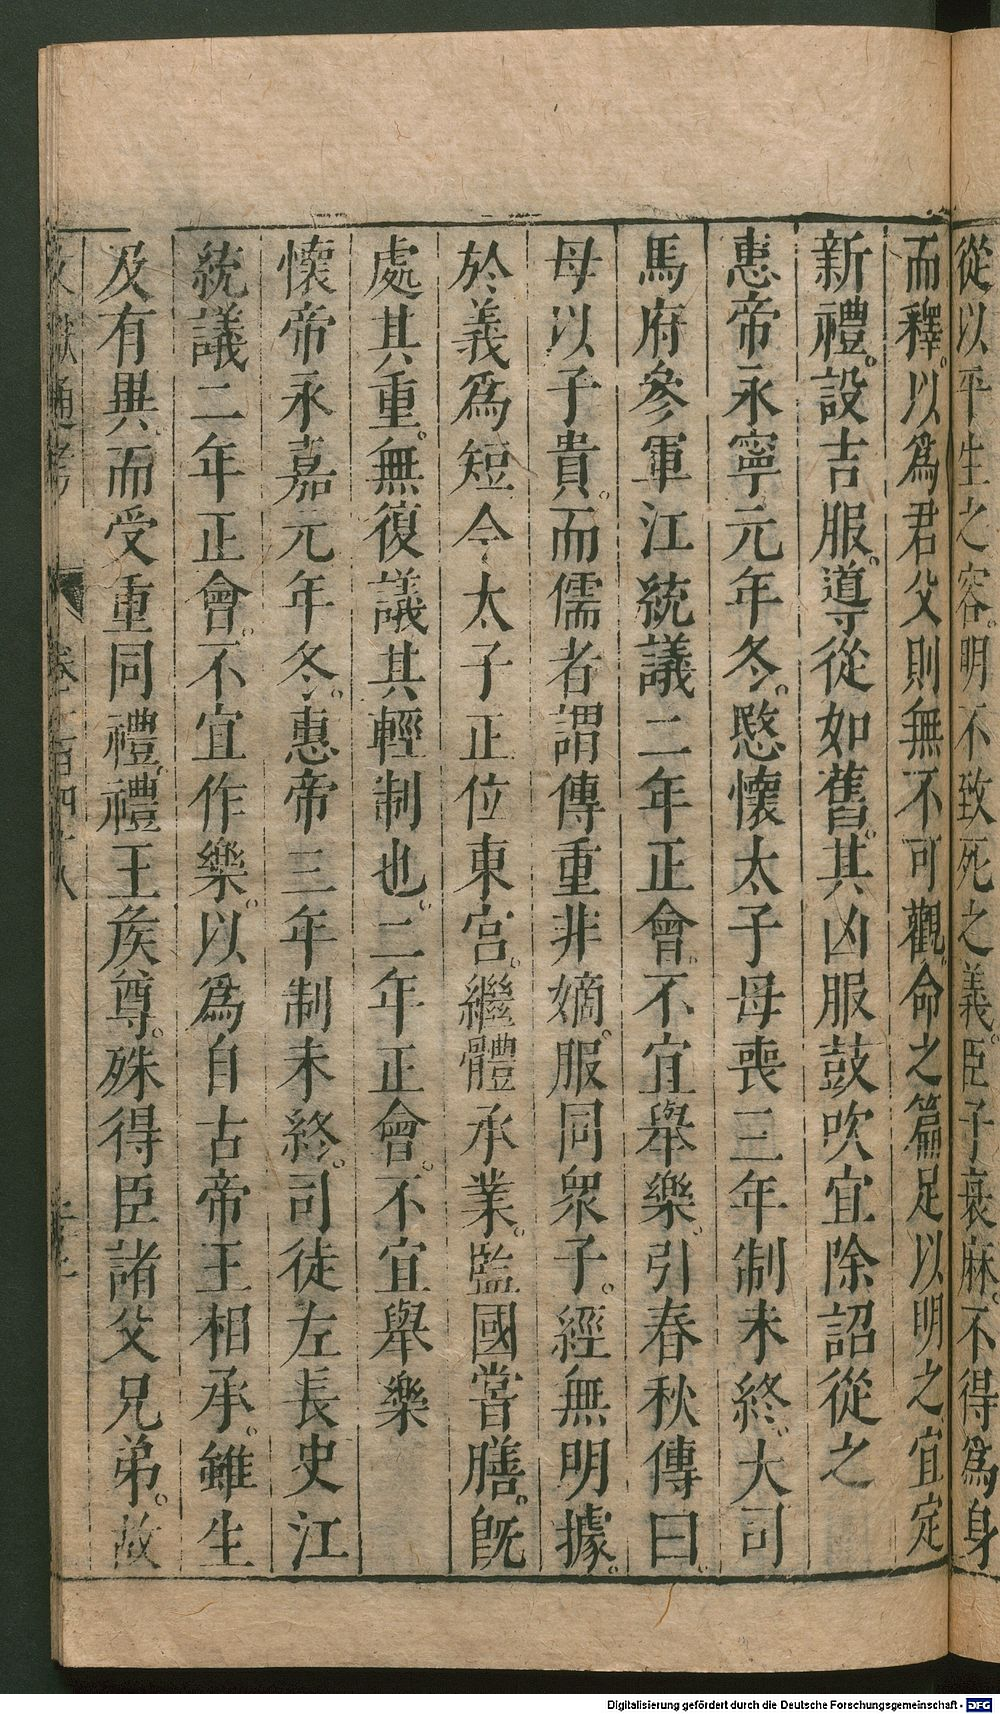 從以平生之容。明不致死之義。臣子衰麻。不得爲身
而釋。以爲君父則無不可觀。命之篇足以明之宜定
新禮。設吉服。導從如舊。其凶服鼓吹宜除詔從之
惠帝永寧元年冬。愍懷太子母喪三年制未終。大司
馬府參軍江統議二年正會。不宜舉樂。引春秋傳曰。
母以子貴。而儒者謂傳重非嫡。服同衆子。經無明據。
於義爲短今太子正位東宮。繼體承業。監國嘗膳。旣
處其重。無復議其輕制也。二年正會。不宜舉樂
懷帝永嘉元年冬。惠帝三年制未終。司徒左長史江
統議二年正會。不宜作樂。以爲自古帝王相承。雖生
及有異。而受重同禮。禮王矦尊。殊得臣諸父兄弟。故
文獻通考 卷一百四十八
Digitalisierung gefördert durch die Deutsche Forschungsgemeinschaft - DFG